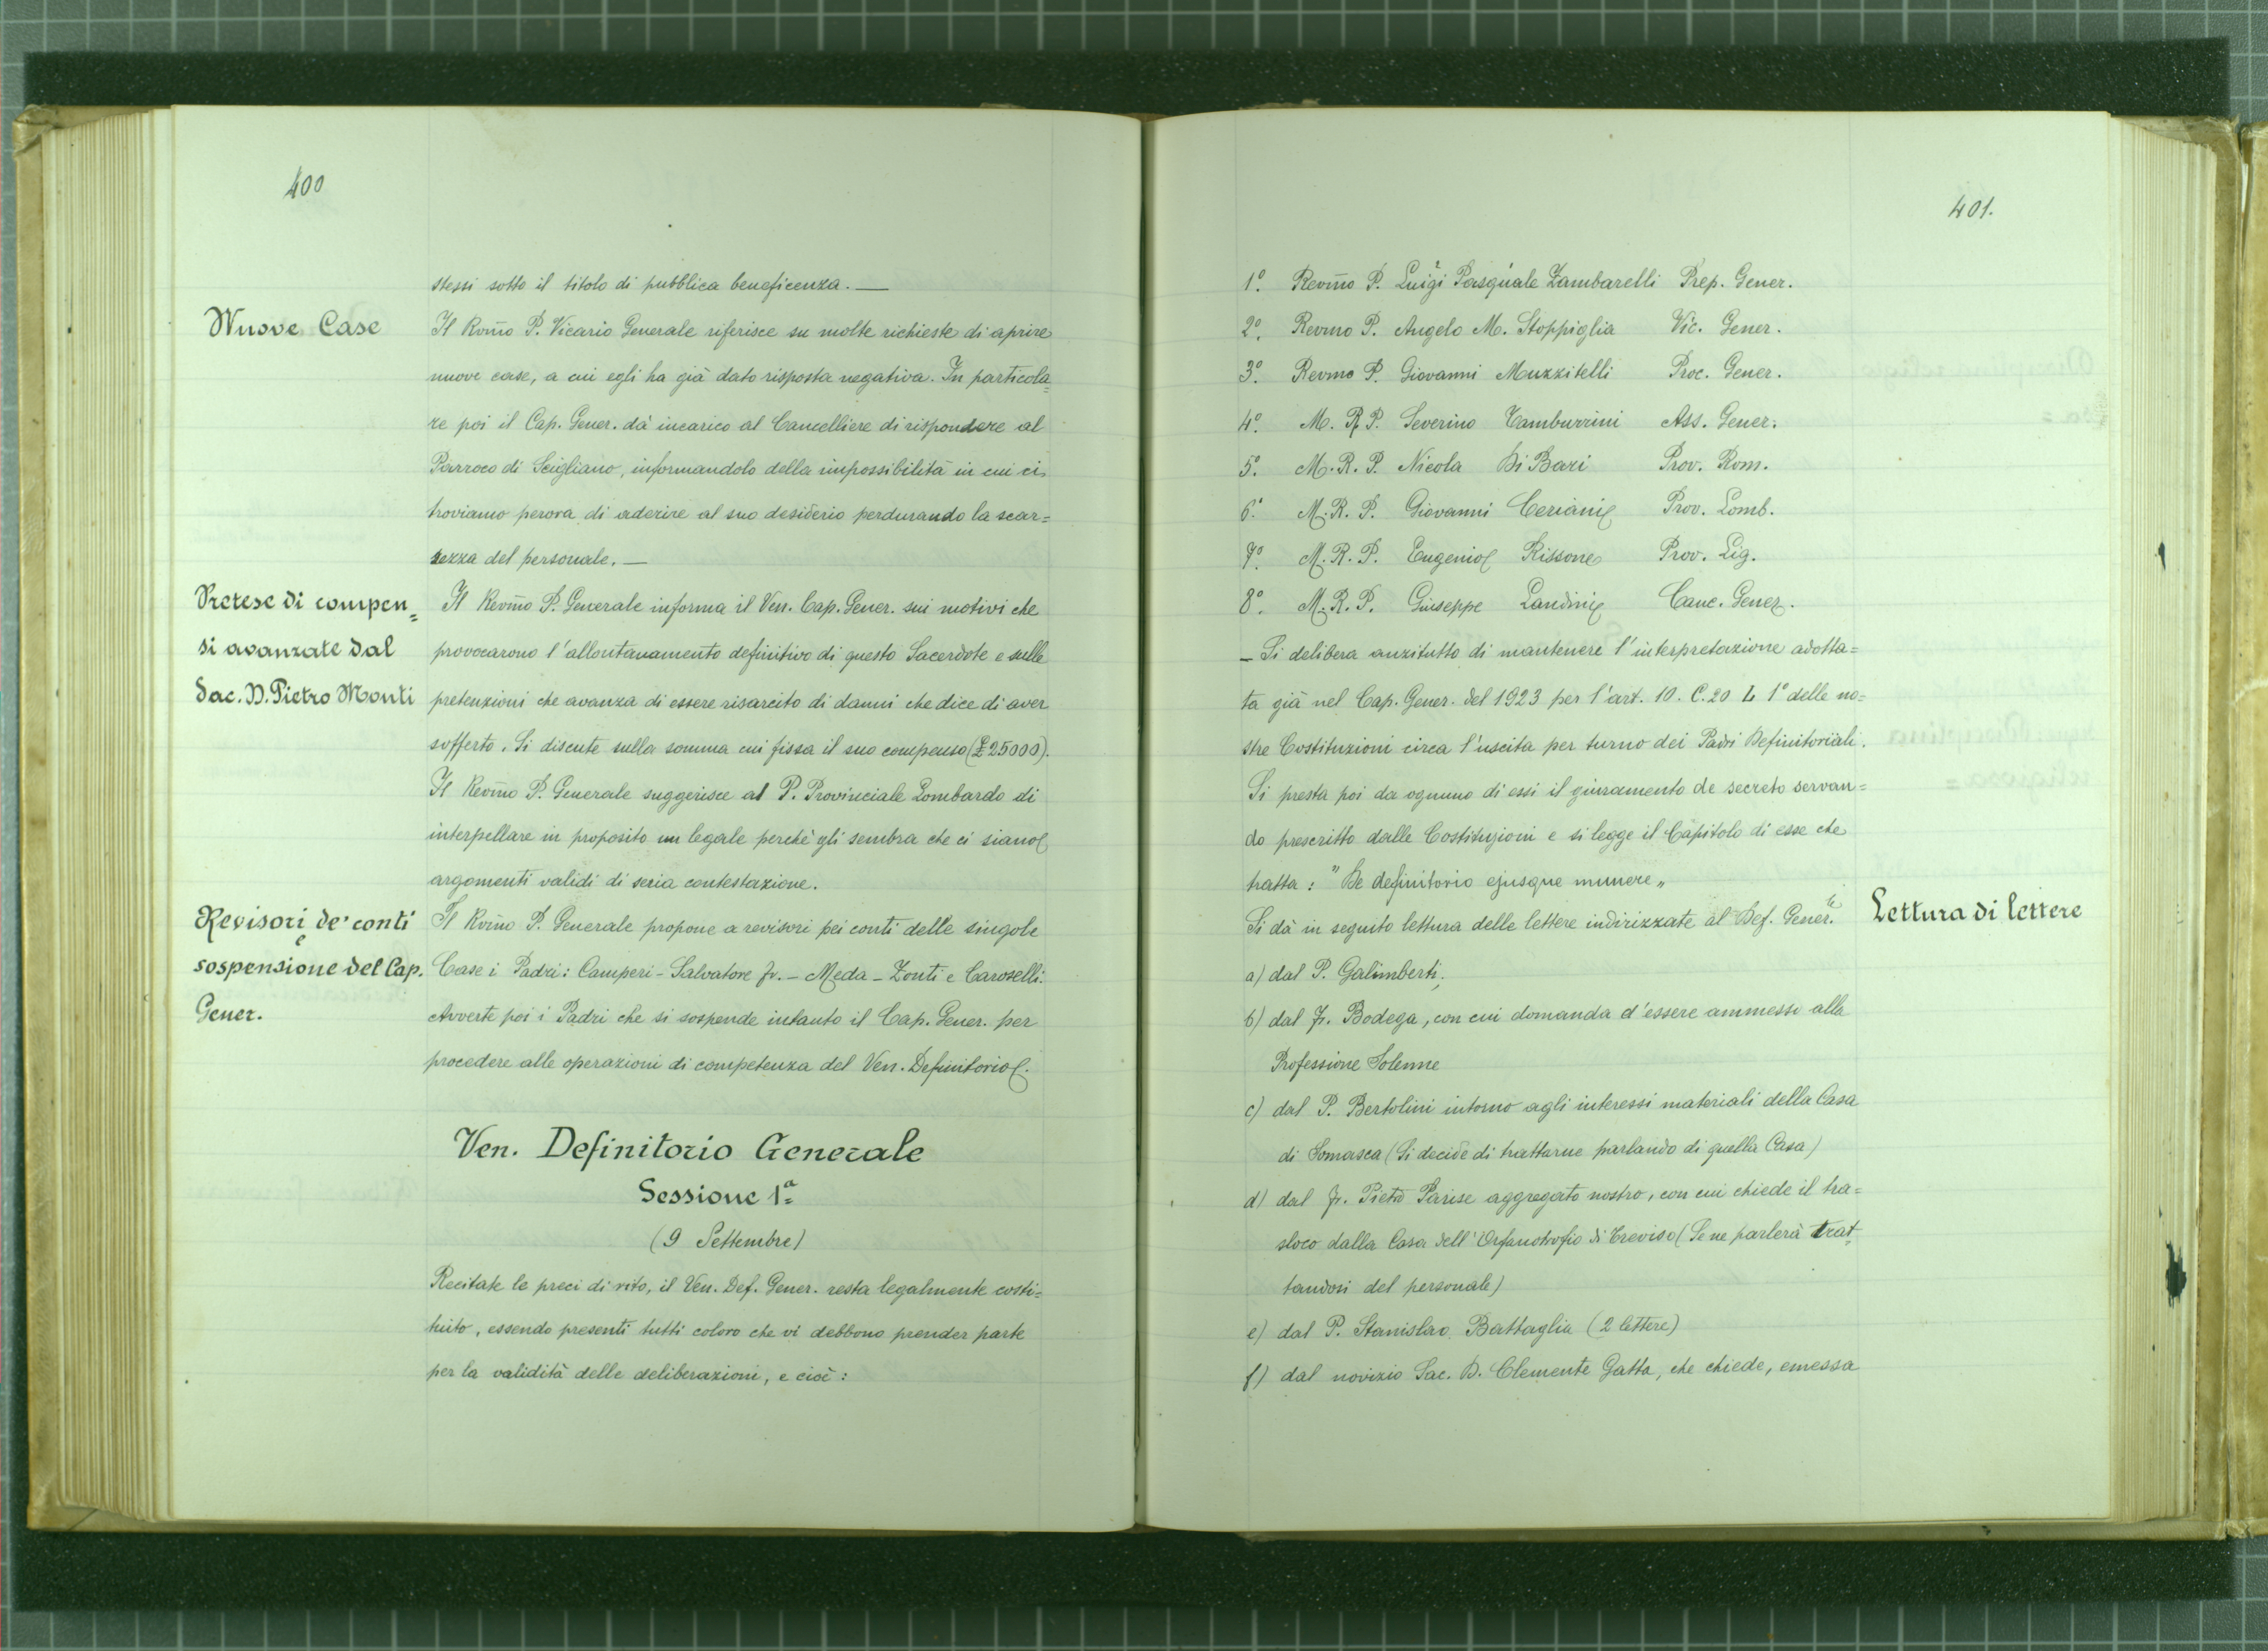 400
stessi sotto il titolo di pubblica beneficenza. —
Nuove Case
Il Rev̄mo P. Vicario Generale riferisce su molte richieste di aprire
nuove case, a cui egli ha già dato risposta negativa. In particola=
re poi il Cap. Gener. dà incarico al Cancelliere di rispondere al
Parroco di Scigliano, informandolo della impossibilità in cui ci
troviamo perora di aderire al suo desiderio perdurando la scar=
sezza del personale. —
Pretese di compen=
si avanzate dal
Sac. D. Pietro Monti
Il Rev̄mo P. Generale informa il Ven. Cap. Gener. sui motivi che
provocarono l'allontanamento definitivo di questo Sacerdote e sulle
pretenzioni che avanza di essere risarcito di danni che dice di aver
sofferto. Si discute sulla somma cui fissa il suo compenso (£ 25000).
Il Rev̄mo P. Generale suggerisce al P. Provinciale Lombardo di
interpellare in proposito un legale perchè gli sembra che ci siano
argomenti validi di seria contestazione.
Revisori de' conti
e
sospensione del Cap.
Gener.
Il Rev̄mo P. Generale propone a revisori pei conti delle singole
Case i Padri: Camperi - Salvatore fr. - Meda - Zonti e Caroselli.
Avverte poi i Padri che si sospende intanto il Cap. Gener. per
procedere alle operazioni di competenza del Ven. Definitorio.
Ven. Definitorio Generale
Sessione 1ª
(9 Settembre)
Recitate le preci di rito, il Ven. Def. Gener. resta legalmente costi=
tuito, essendo presenti tutti coloro che vi debbono prender parte
per la validità delle deliberazioni, e cioè:
401.
1º. Rev̄mo P. Luigi Pasquale Zambarelli Prep. Gener.
2º. Revmo P. Angelo M. Stoppiglia Vic. Gener.
3º. Revmo P. Giovanni Muzzitelli Proc. Gener.
4º. M. R. P. Severino Tamburrini Ass. Gener.
5º. M. R. P. Nicola Di Bari Prov. Rom.
6º. M. R. P. Giovanni Ceriani Prov. Lomb.
7º. M. R. P. Eugenio Rissone Prov. Lig.
8º. M. R. P. Giuseppe Landini Canc. Gener.
— Si delibera anzitutto di mantenere l'interpretazione adotta=
ta già nel Cap. Gener. del 1923 per l'art. 10. C. 20 L 1º delle no=
stre Costituzioni circa l'uscita per turno dei Padri Definitoriali.
Si presta poi da ognuno di essi il giuramento de secreto servan=
do prescritto dalle Costituzioni e si legge il Capitolo di esse che
tratta: "De definitorio ejusque munere„
Si dà in seguito lettura delle lettere indirizzate al Def. Gener.le
Lettura di lettere
a) dal P. Galimberti;
b) dal fr. Bodega, con cui domanda d'essere ammesso alla
Professione Solenne
c) dal P. Bertolini intorno agli interessi materiali della Casa
di Somasca (Si decide di trattarne parlando di quella Casa)
d) dal fr. Pietro Parise aggregato nostro, con cui chiede il tra=
sloco dalla Casa dell'Orfanotrofio di Treviso (Se ne parlerà trat=
tandosi del personale)
e) dal P. Stanislao Battaglia (2 lettere)
f) dal novizio Sac. D. Clemente Gatta, che chiede, emessa